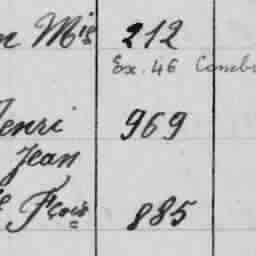 Mis 212
Ex. 46 Comb
Henri 969
Jean
Fçois 885